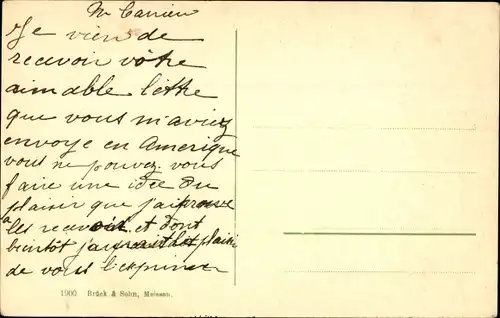 Mr Carrieu
Je vien de
recevoir vôtre
aimable lettre
que vous m'aviez
envoye en Amerique
vous ne pouvez vous
faire une idée du
plaisir que j'ai
à les recevoir et dont
bientôt j'aurait le plaisir
de vous l'exprimer
1900 Brück & Sohn, Meissen.